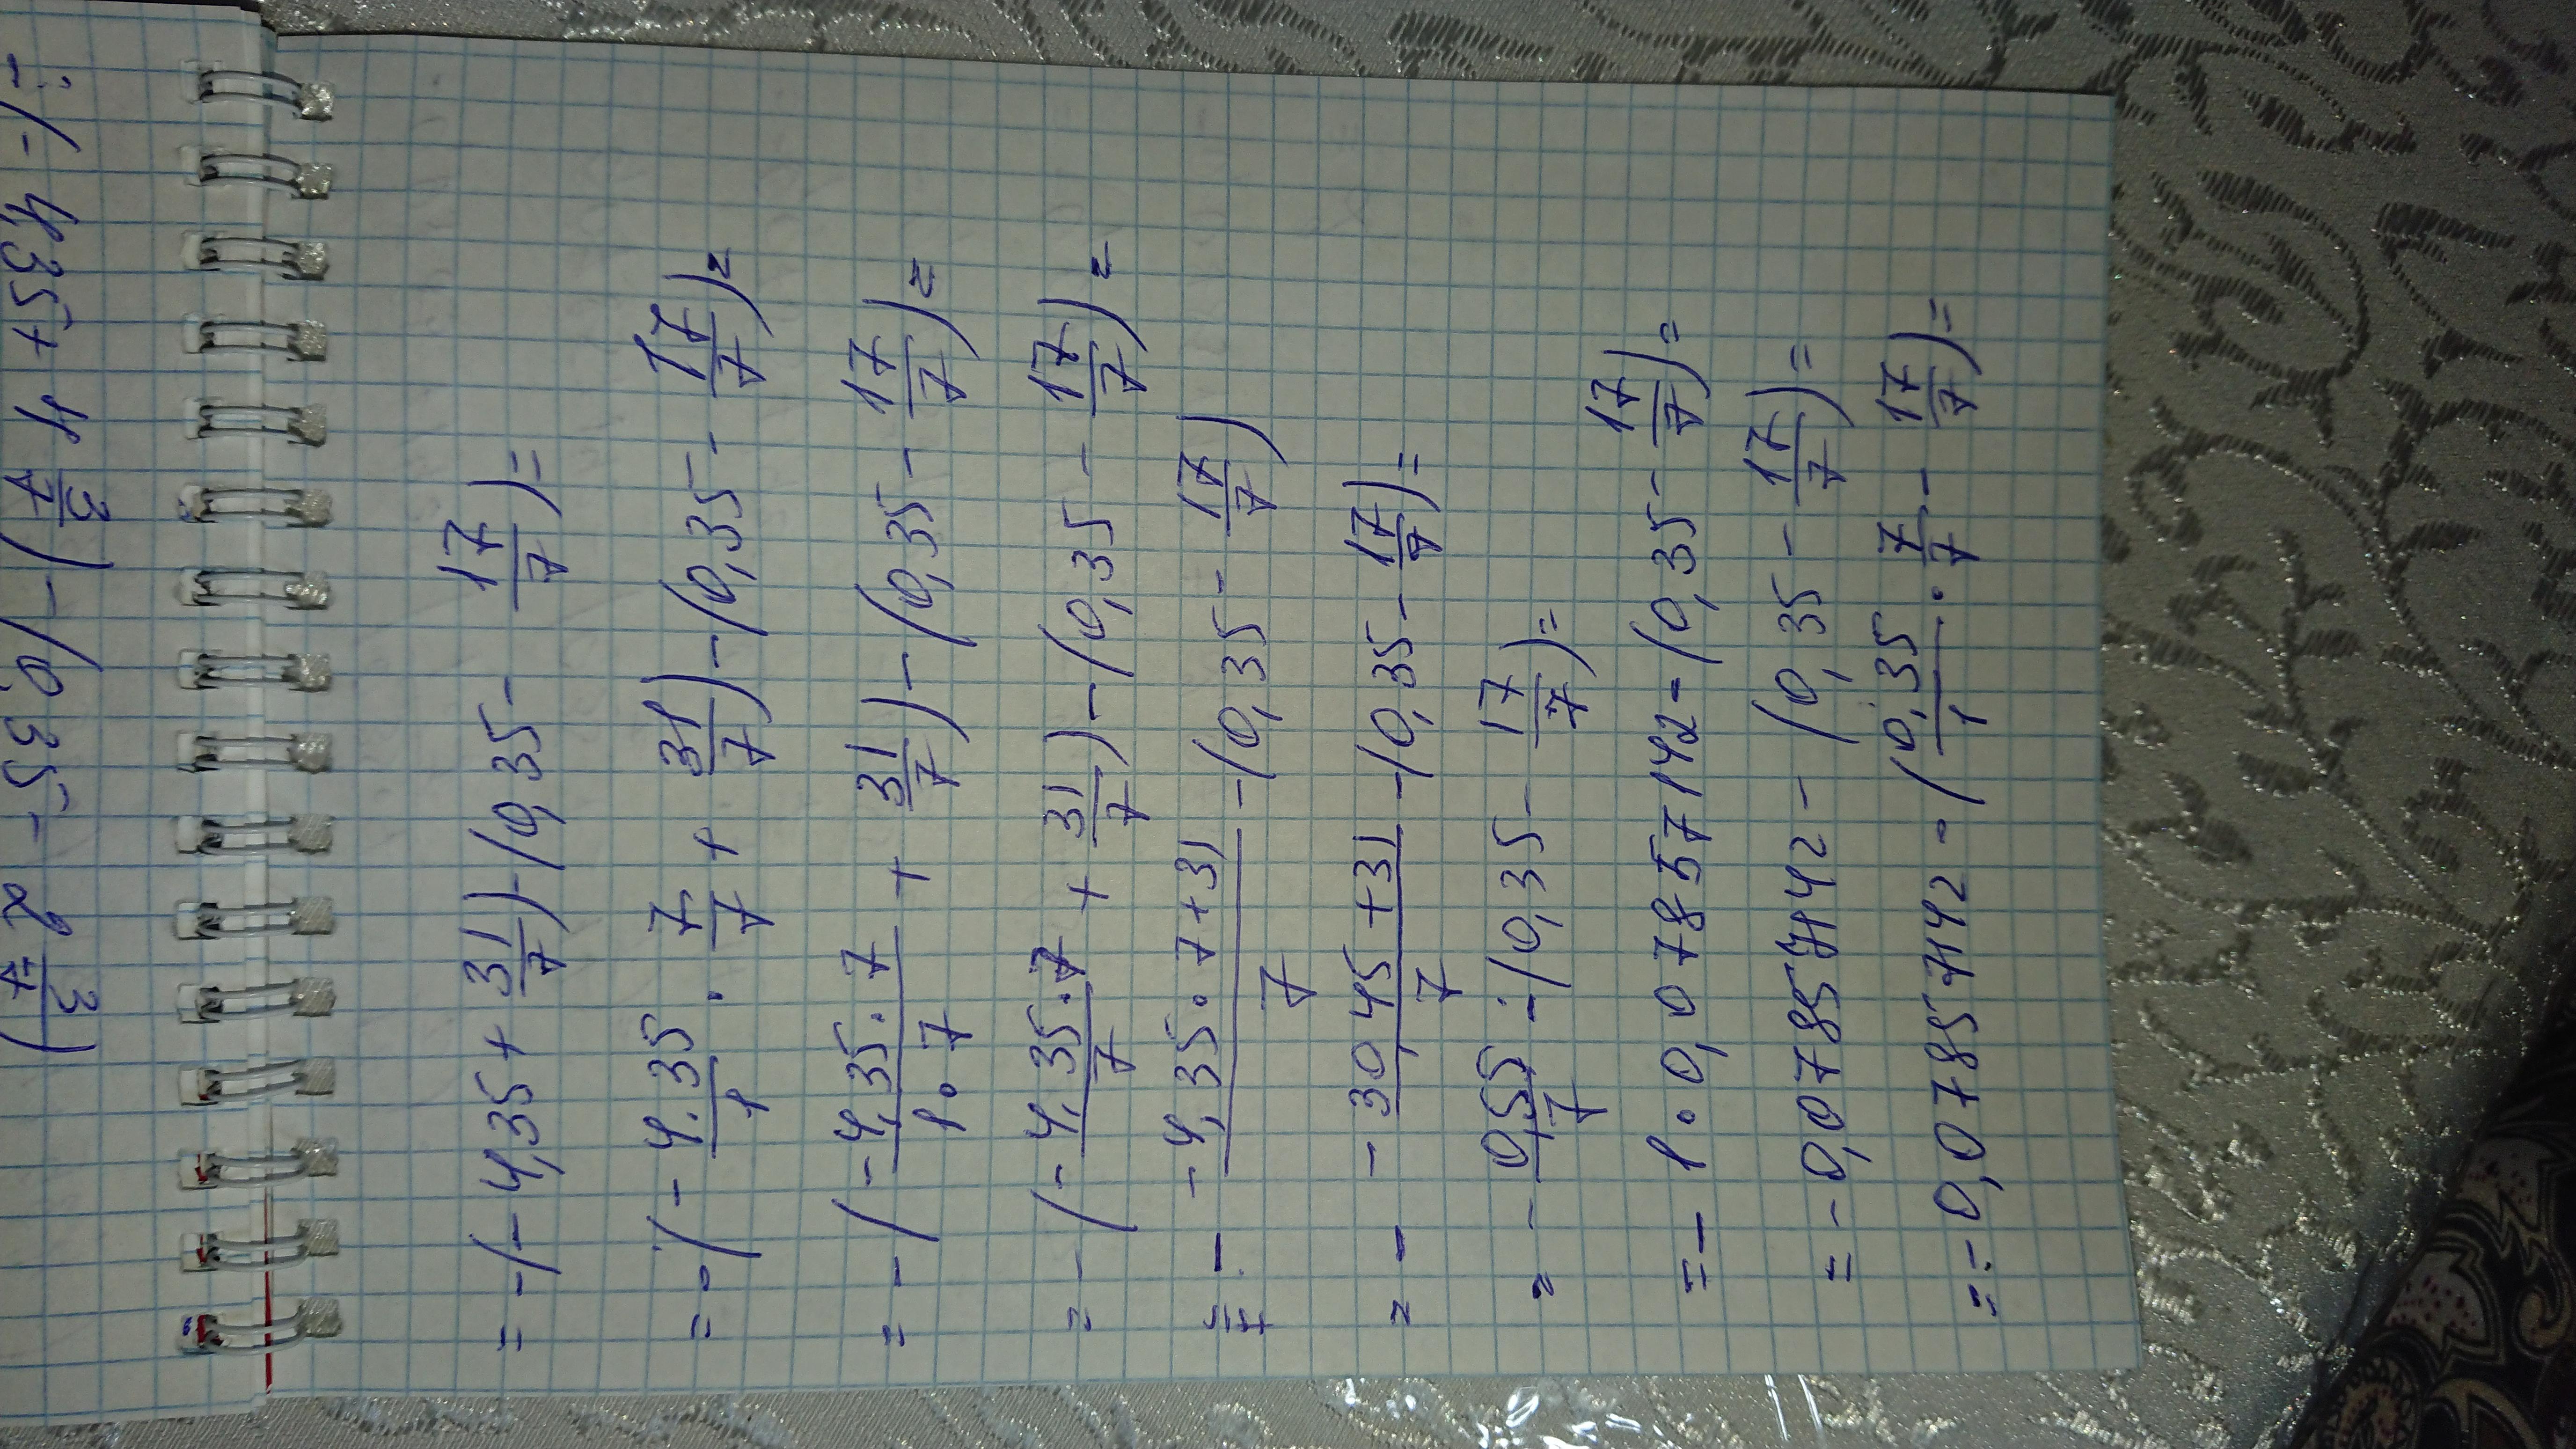 -(-4.35+4 3/7)-(0.35-2 3/7)
= -(-4,35+31/7)-(0,35-17/7)=
= -(-4.35/1 · 7/7 + 31/7)-(0,35-17/7)=
= -(-4,35·7/1·7 + 31/7)-(0,35-17/7)=
= -(-4,35·7/7 + 31/7)-(0,35-17/7)=
= - -4,35·7+31/7 -(0,35-17/7)
= - -30,45+31/7 -(0,35-17/7)=
= - 0,55/7 -(0,35-17/7)=
= -1·0,07857142-(0,35-17/7)=
= -0,07857142-(0,35-17/7)=
= -0,07857142-(0,35/1 · 7/7 - 17/7)=